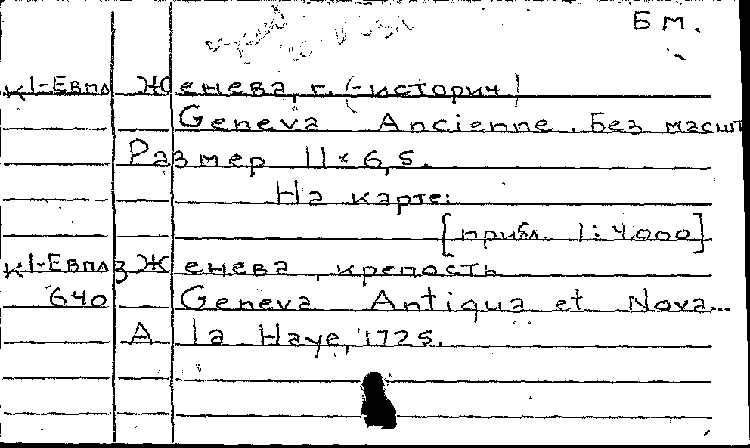 Б м.
к1-Евпл Женева, г. (-историч.)
Geneva Ancienne. Без масшт
Размер 11 × 6,5.
На карте:
[прибл. 1:4000]
к1-Евпл3 Женева, крепость
640 Geneva Antiqua et Nova...
A la Haye, 1725.